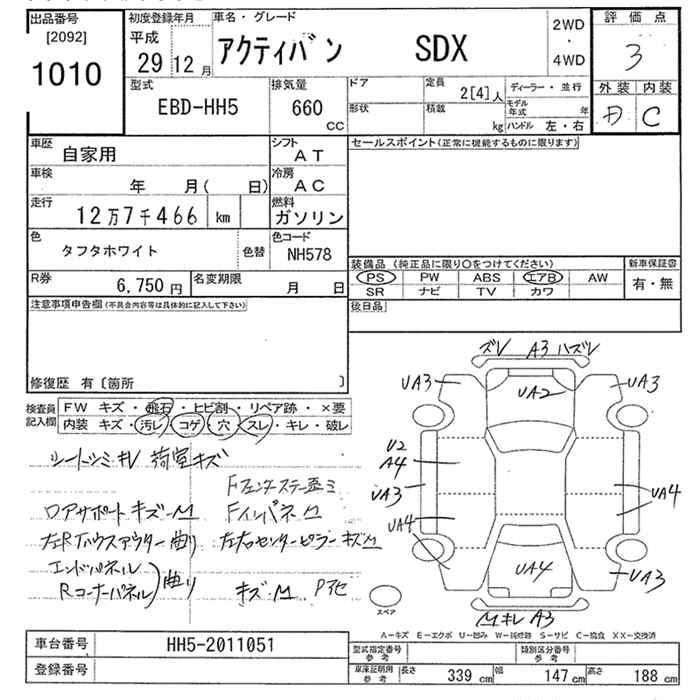 出品番号
[2092]
1010
初度登録年月
平成
29 12 月
車名・グレード
アクティバン SDX
2WD
・
4WD
評価点
3
外装 内装
C
型式
EBD-HH5
排気量
660
CC
ドア
形状
定員
2[4]人
積載
kg
ディーラー・並行
モデル年式 年
ハンドル 左・右
車歴
自家用
シフト
AT
車検
年 月( 日)
冷房
AC
走行
12万7千466 km
燃料
ガソリン
色
タフタホワイト
色替
色コード
NH578
R券
6,750 円
名変期限
月 日
セールスポイント(正常に機能するものに限ります)
装備品 (純正品に限り○をつけてください)
PS PW ABS エアB AW
SR ナビ TV カワ
新車保証書
有・無
後日品
注意事項申告欄(不具合内容等は具体的に記入して下さい)
修復歴 有〔箇所 〕
検査員記入欄
FW キズ・飛石・ヒビ割・リペア跡・×要
内装 キズ・汚レ・コゲ・穴・スレ・キレ・破レ
シートシミキレ 荷室キズ
ロアサポートキズ・M
Fインパネ M
左Rハウスアウター曲り
左右センターピラーキズM
エンドパネル
Rコーナーパネル
曲り
キズ・M
ズレ A3 ハズレ
UA3 UA2 UA3
U2
A4
UA3 UA4
UA4
UA4 UA3
スペア
Mキレ A3
A-キズ E-エクボ U-凹み W-補修跡 S-サビ C-腐食 XX-交換済
車台番号
HH5-2011051
登録番号
型式指定番号
参考
類別区分番号
参考
車庫証明用
参考
長さ 339 cm 幅 147 cm 高さ 188 cm